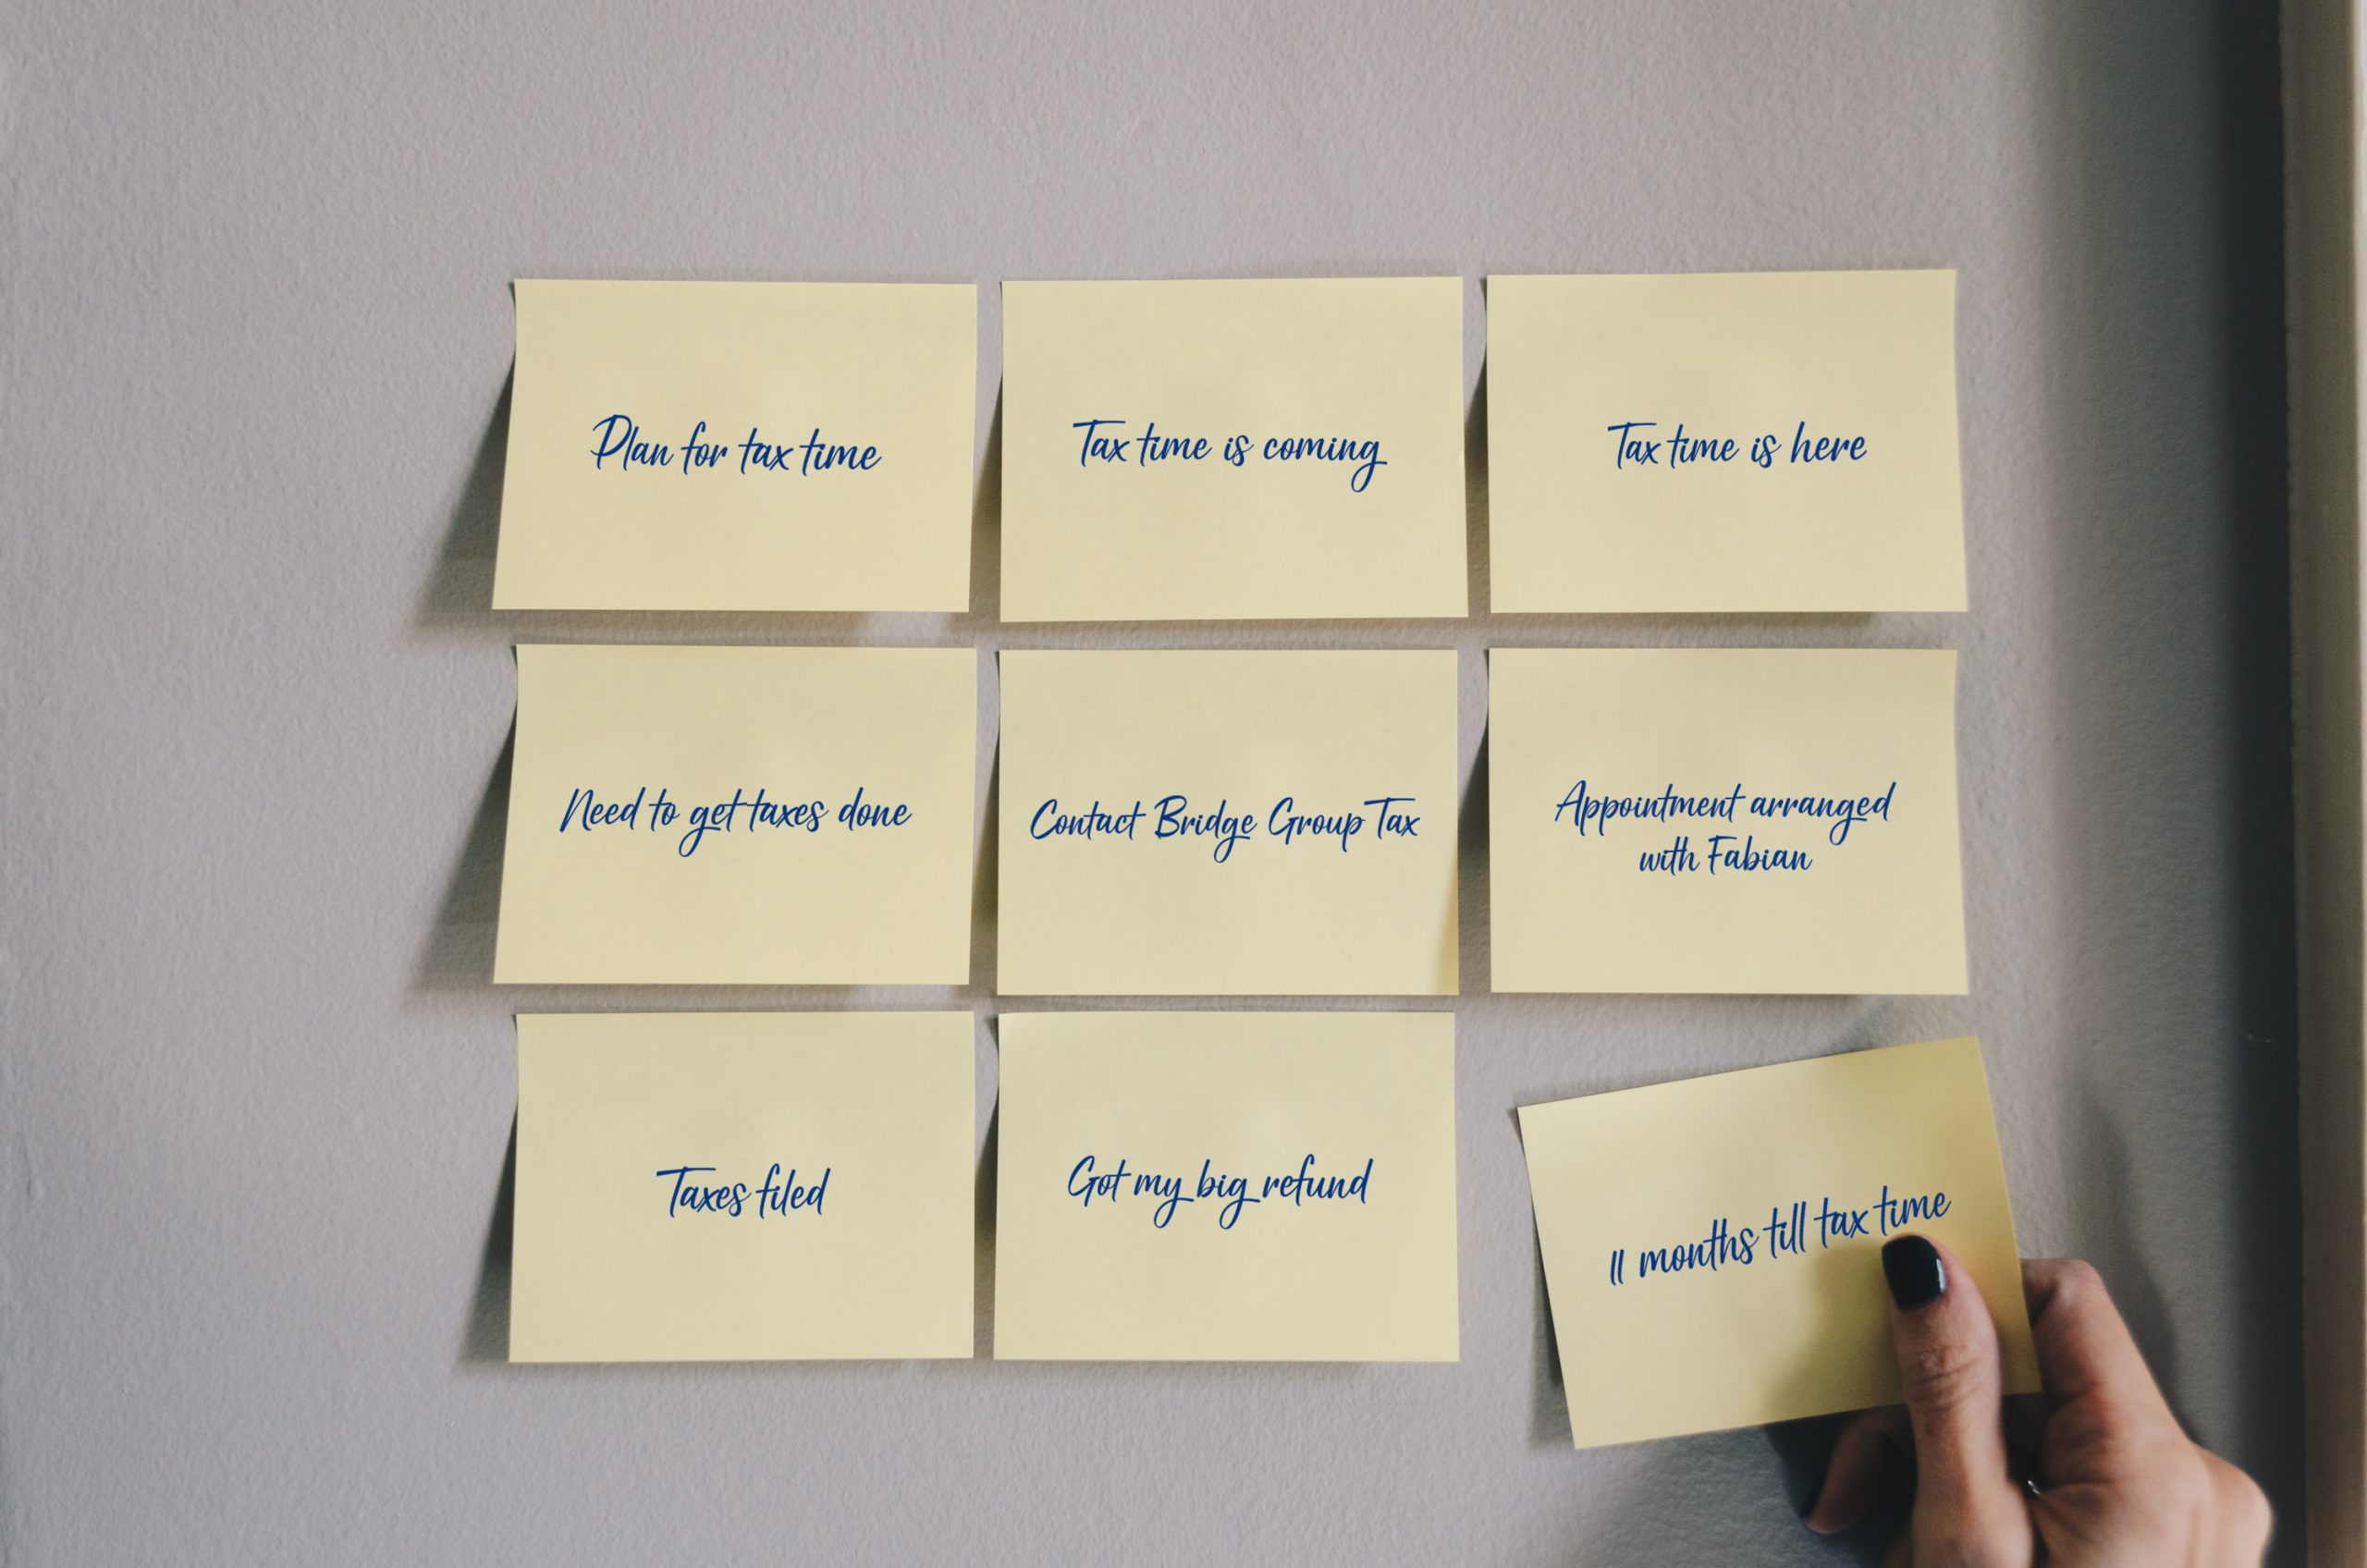 Plan for tax time
Tax time is coming
Tax time is here
Need to get taxes done
Contact Bridge Group Tax
Appointment arranged
with Fabian
Taxes filed
Got my big refund
11 months till tax time